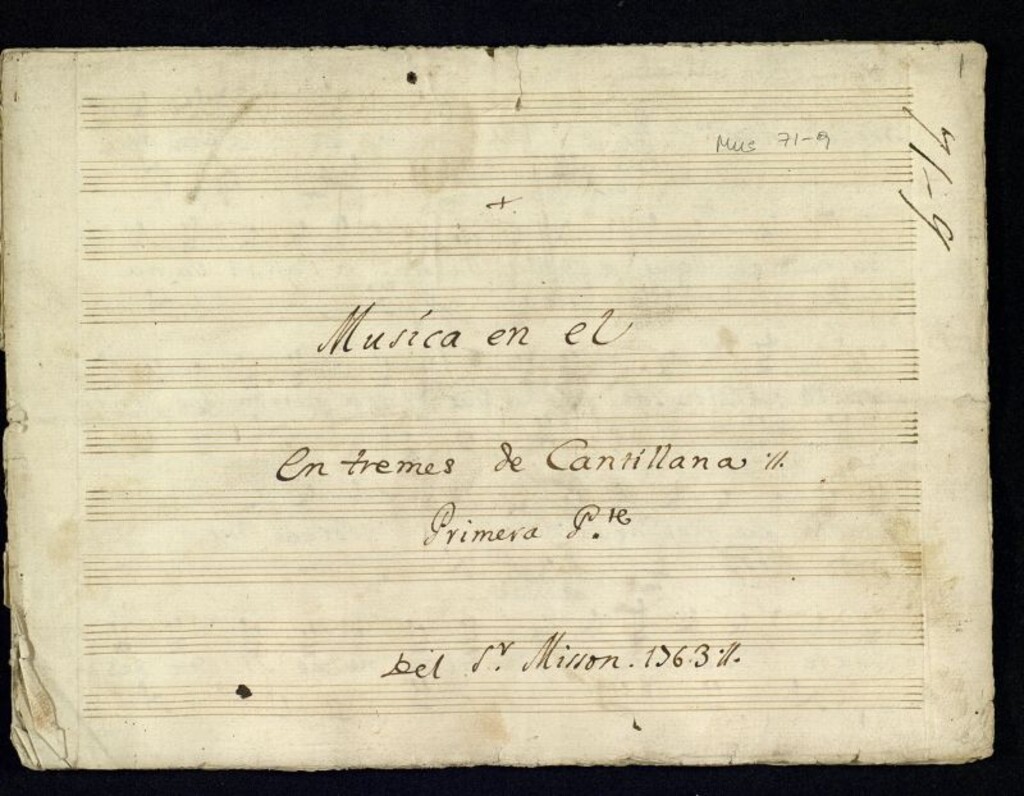 1
Mus 71-9
71-9
+
Musica en el
Entremes de Cantillana :||.
Primera P.te
Del S.r Misson. 1763 :||.